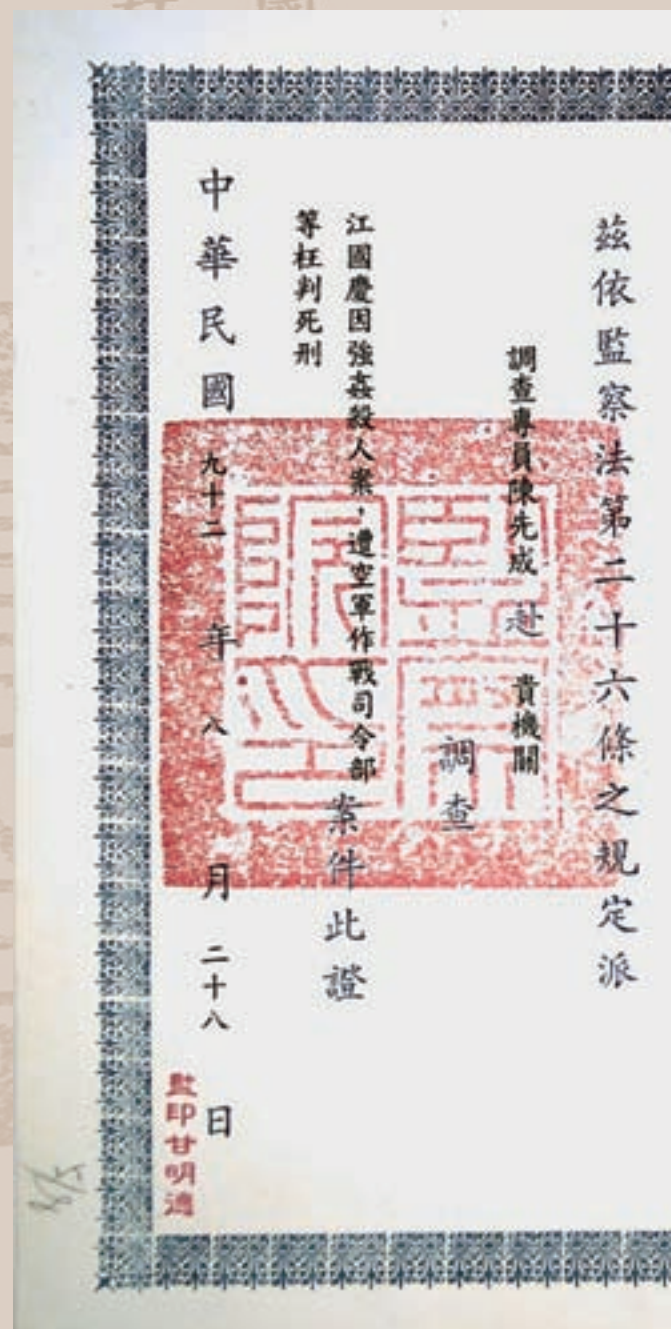 茲依監察法第二十六條之規定派
調查專員陳先成赴 貴機關
調查
江國慶因強姦殺人案，遭空軍作戰司令部
等枉判死刑
案件此證
中華民國九十二年八月二十八日
監印甘明適
監察院印